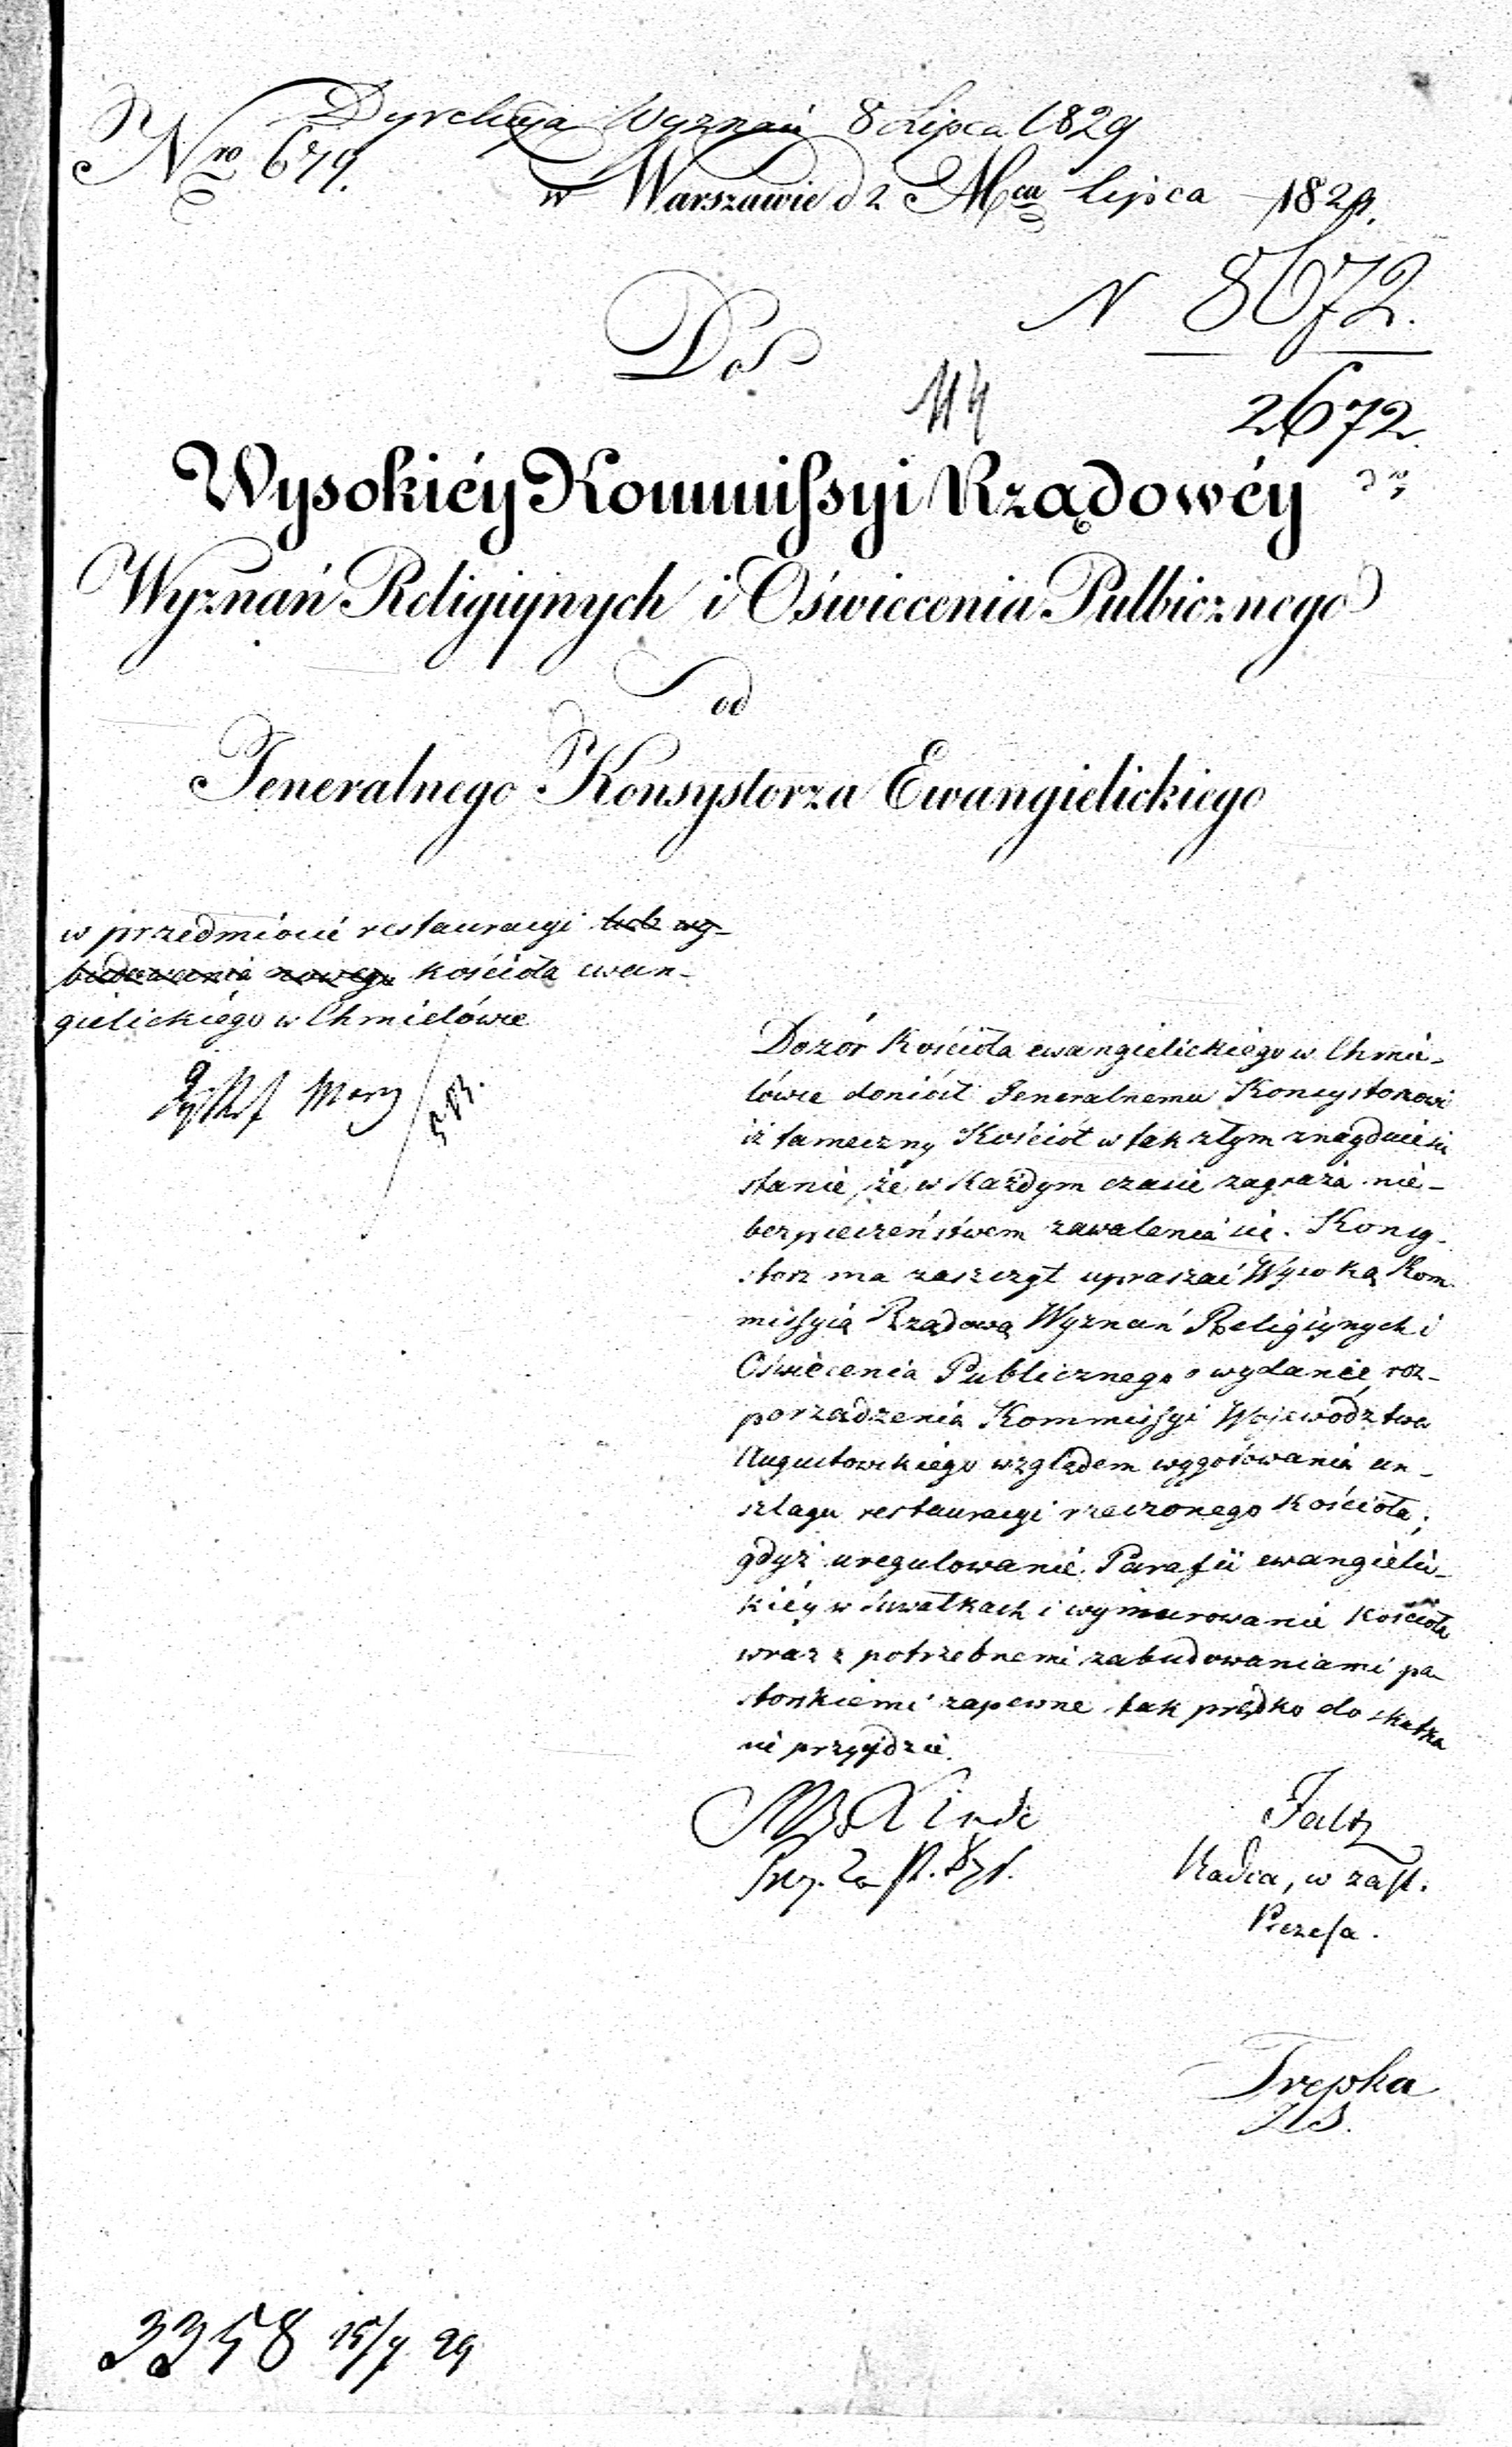 Dyrekcyja Wyznań 8 Lipca 1829
Nro 679.
w Warszawie d 2 Mca lipca 1829.
N 8672.
Do
114
2672
Wysokiéy Kommissyi Rządowéy
Wyznań Religiynych i Oświecenia Pulbicznego
od
Jeneralnego Konsystorza Ewangielickiego
w przedmiocie restauracyi lub wy-
budowania nowego kościoła ewan-
gielickiégo w Chmielówie
Dozór Kościoła ewangielickiégo w Chmie-
lówie doniósł Jeneralnemu Konsystorzowi
iż tameczny Kościół w tak złym znayduie się
stanie, że w każdym czasie zagraża nie-
bezpieczeństwem zawalenia się. Konsy-
storz ma zaszczyt upraszać Wysoką Kom-
missyią Rządową Wyznań Religiynych i
Oświecenia Publicznego o wydanie roz-
porządzenia Kommissyi Województwa
Augustowskiégo względem wygotowania an-
szlagu restauracyi rzeczonego kościoła;
gdyż uregulowanie Parafii ewangielic-
kiéy w Suwałkach i wymurowanie kościoła
wraz z potrzebnemi zabudowaniami pa-
storskiemi zapewne tak prędko do skutku
nie przyydzie.
Linde
Falz
Radca, w zast.
Prezesa.
Trepka
ZS.
3358 15/7 29